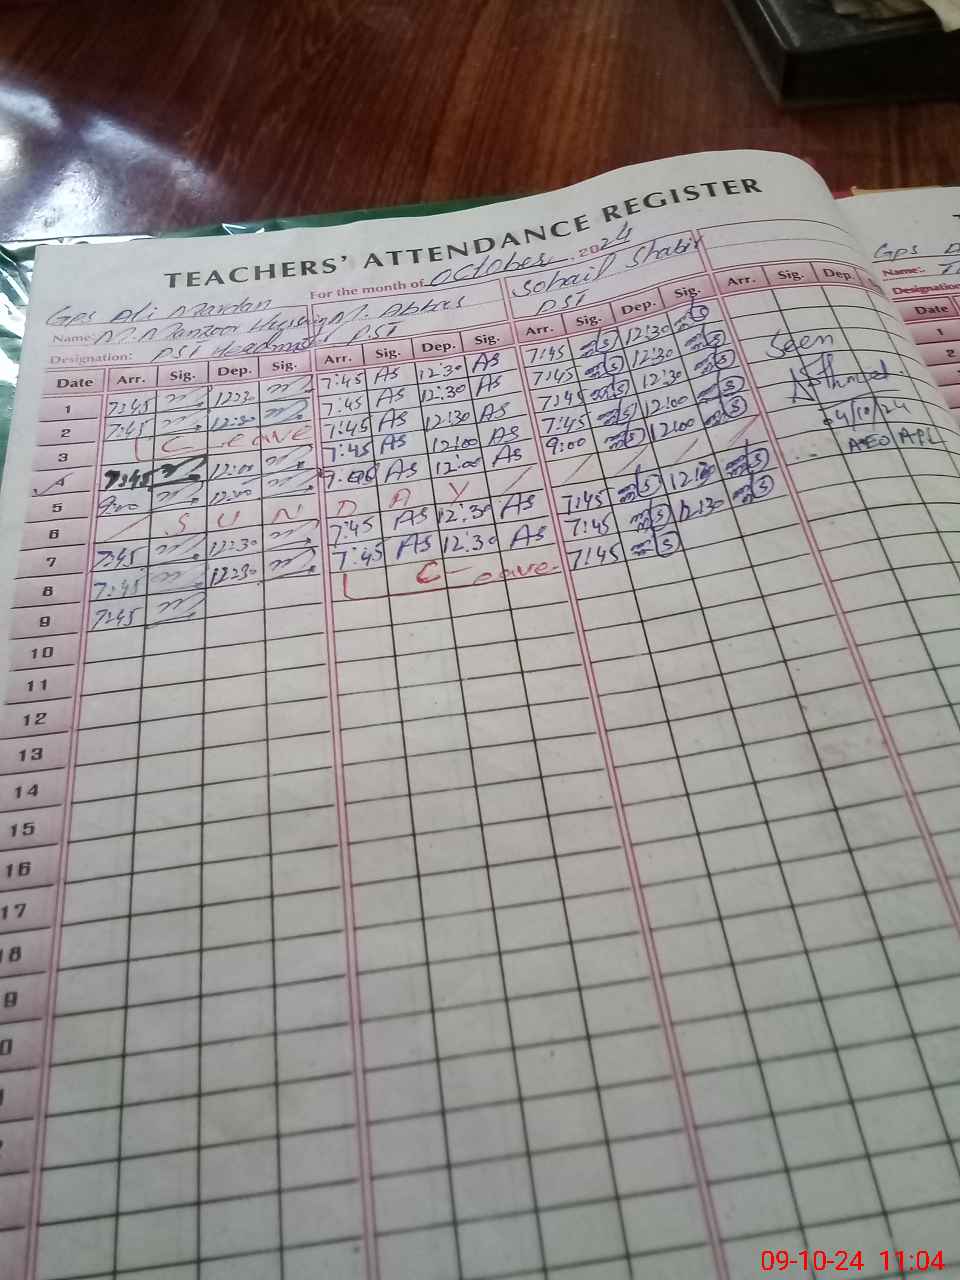 TEACHERS' ATTENDANCE REGISTER
For the month of October 2024
Gps Ali Mardan
Name: M. Manzoor Hussain M. Abbas Sohail Shabir
Designation: PST Headmaster PST PST
Date Arr. Sig. Dep. Sig. Arr. Sig. Dep. Sig. Arr. Sig. Dep. Sig. Arr. Sig. Dep.
1 7:45 12:30 7:45 AS 12:30 AS 7:45 S 12:30 S
2 7:45 12:30 7:45 AS 12:30 AS 7:45 S 12:30 S
3 C Leave 7:45 AS 12:30 AS 7:45 S 12:30 S
4 7:45 12:00 7:45 AS 12:00 AS 7:45 S 12:00 S
5 9:00 12:00 AS 12:00 AS 9:00 S 12:00 S
6 S U N D A Y
7 7:45 12:30 7:45 AS 12:30 AS 7:45 S 12:30 S
8 7:45 12:30 7:45 AS 12:30 AS 7:45 S 12:30 S
9 7:45 C-Leave 7:45 S
Seen
04/10/24
AEO
10
11
12
13
14
15
16
17
18
9
0
Gps
Name:
Designation
Date
1
2
3
09-10-24 11:04